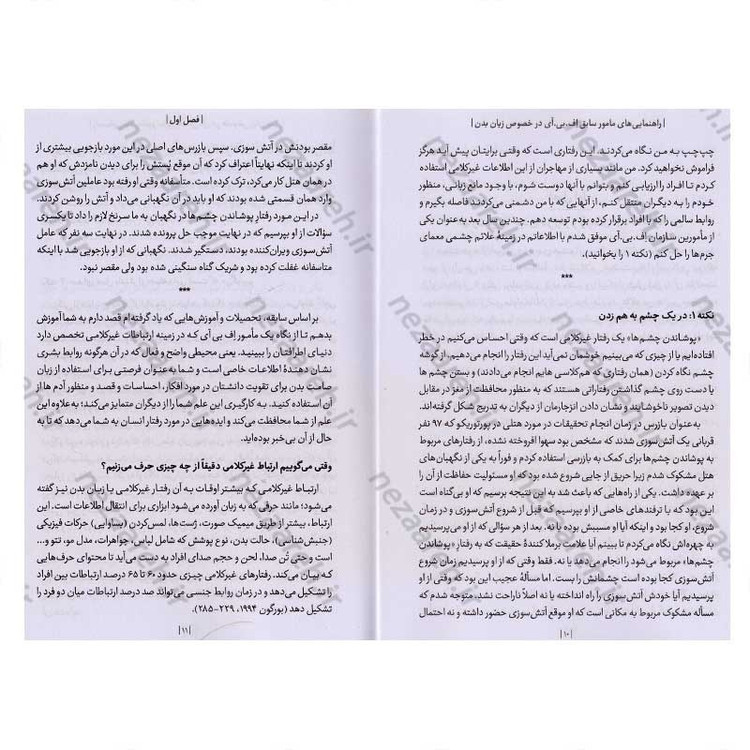 | راهنمایی‌های مامور سابق اِف.بی.آی در خصوص زبان بدن |
چپ‌چپ به من نگاه می‌کردند. این رفتاری است که وقتی برایتان پیش آید هرگز
فراموش نخواهید کرد. من مانند بسیاری از مهاجران از این اطلاعات غیرکلامی استفاده
کردم تا افراد را ارزیابی کنم و بتوانم با آنها دوست شوم، با وجود مانع زبانی، منظور
خودم را به دیگران منتقل کنم، از آنهایی که با من دشمنی می‌کردند فاصله بگیرم و
روابط سالمی را که با افراد برقرار کرده بودم توسعه دهم. چندین سال بعد به‌عنوان یکی
از مأمورین سازمان اِف.بی.آی موفق شدم با اطلاعاتم در زمینهٔ علائم چشمی معمای
جرم‌ها را حل کنم (نکته ۱ را بخوانید).
***
نکته ۱: در یک چشم به هم زدن
«پوشاندن چشم‌ها» یک رفتار غیرکلامی است که وقتی احساس می‌کنیم در خطر
افتاده‌ایم یا از چیزی که می‌بینیم خوشمان نمی‌آید این رفتار را انجام می‌دهیم. از گوشه
چشم نگاه کردن (همان رفتاری که هم‌کلاسی هایم انجام می‌دادند) و بستن چشم ها
یا دست روی چشم گذاشتن رفتاری هستند که به منظور محافظت از مغز در مقابل
دیدن تصویر ناخوشایند و نشان دادن انزجارمان از دیگران به تدریج شکل گرفته‌اند.
به عنوان بازرس در زمان انجام تحقیقات در مورد هتلی در پورتوریکو که ۹۷ نفر
قربانی یک آتش‌سوزی شدند که مشخص بود سهوا افروخته نشده، از رفتارهای مربوط
به پوشاندن چشم‌ها برای کمک به بازرسی استفاده کردم و فوراً به یکی از نگهبان‌های
هتل مشکوک شدم زیرا حریق از جایی شروع شده بود که او مسئولیت حفاظت از آن را
بر عهده داشت. یکی از راه‌هایی که باعث شد به این نتیجه برسیم که او بی‌گناه است
این بود که با ترفندهای خاصی از او بپرسیم که قبل از شروع آتش‌سوزی و در زمان
شروع، او کجا بود و اینکه آیا او مسببش بوده یا نه. بعد از هر سؤالی که از او می‌پرسیدیم
به چهره‌اش نگاه می‌کردم تا ببینم آیا علامت برملا کنندهٔ حقیقت که به رفتارِ «پوشاندن
چشم‌ها» مربوط می‌شود را انجام می‌دهد یا نه. فقط وقتی که از او پرسیدیم زمان شروع
آتش‌سوزی کجا بوده است چشمانش را بست. اما مسألهٔ عجیب این بود که وقتی از او
پرسیدیم آیا خودش آتش‌سوزی را راه انداخته یا نه اصلاً ناراحت نشد، متوجه شدم که
مسأله مشکوک مربوط به مکانی است که او موقع آتش‌سوزی حضور داشته و نه احتمال
|۱۰|
| فصل اول |
مقصر بودنش در آتش سوزی. سپس بازرس‌های اصلی در این مورد بازجویی بیشتری از
او کردند تا اینکه نهایتاً اعتراف کرد که آن موقع پُستش را برای دیدن نامزدش که او هم
در همان هتل کار می‌کرد، ترک کرده است. متأسفانه وقتی او رفته بود عاملین آتش‌سوزی
وارد همان قسمتی شده بودند که او باید در آن نگهبانی می‌داد و آتش را روشن کردند.
در این مورد رفتارِ پوشاندن چشم‌ها در نگهبان به ما سرنخ لازم را داد تا یکسری
سؤالات از او بپرسیم که در نهایت موجب حل پرونده شدند. در نهایت سه نفر که عامل
آتش‌سوزی ویران‌کننده بودند، دستگیر شدند. نگهبانی که از او بازجویی شد با اینکه
متاسفانه غفلت کرده بود و شریک گناه سنگینی شده بود ولی مقصر نبود.
***
بر اساس سابقه، تحصیلات و آموزش‌هایی که یاد گرفته‌ام قصد دارم به شما آموزش
بدهم تا از نگاه یک مأمور اِف بی آی که در زمینه ارتباطات غیرکلامی تخصص دارد
دنیای اطرافتان را ببینید. یعنی محیطی واضح و فعال که در آن هرگونه روابط بشری
نشان دهندهٔ اطلاعات خاصی است و شما به‌عنوان فرصتی برای استفاده از زبانِ
صامتِ بدن برای تقویت دانشتان در مورد افکار، احساسات و قصد و منظور آدم ها از
آن استفاده کنید. به کارگیری این علم شما را از دیگران متمایز می‌کند؛ به‌علاوه این
علم از شما محافظت می‌کند و ایده‌هایی در مورد رفتار انسان به شما می‌دهد که تا به
حال از آن بی‌خبر بوده‌اید.
وقتی می‌گوییم ارتباط غیرکلامی دقیقاً از چه چیزی حرف می‌زنیم؟
ارتباط غیرکلامی که بیشتر اوقات به آن رفتار غیرکلامی یا زبان بدن نیز گفته
می‌شود؛ مانند حرفی که به زبان آورده می‌شود ابزاری برای انتقال اطلاعات است. این
ارتباط، بیشتر از طریق میمیک صورت، ژست‌ها، لمس‌کردن (بساوایی) حرکات فیزیکی
(جنبش‌شناسی)، حالت بدن، نوع پوشش که شامل لباس، جواهرات، مدل مو، تتو و...
است و حتی تُن صدا، لحن و حجم صدای افراد به دست می‌آید تا محتوای حرف‌هایی
که بیان می‌کند. رفتارهای غیرکلامی چیزی حدود ۶۰ تا ۶۵ درصد ارتباطات بین افراد
را تشکیل می‌دهد و در زمان روابط جنسی می‌تواند صد درصد ارتباطات میان دو فرد را
تشکیل دهد (بورگون ۱۹۹۴، ۲۲۹-۲۸۵).
|۱۱|
nezaareh.ir